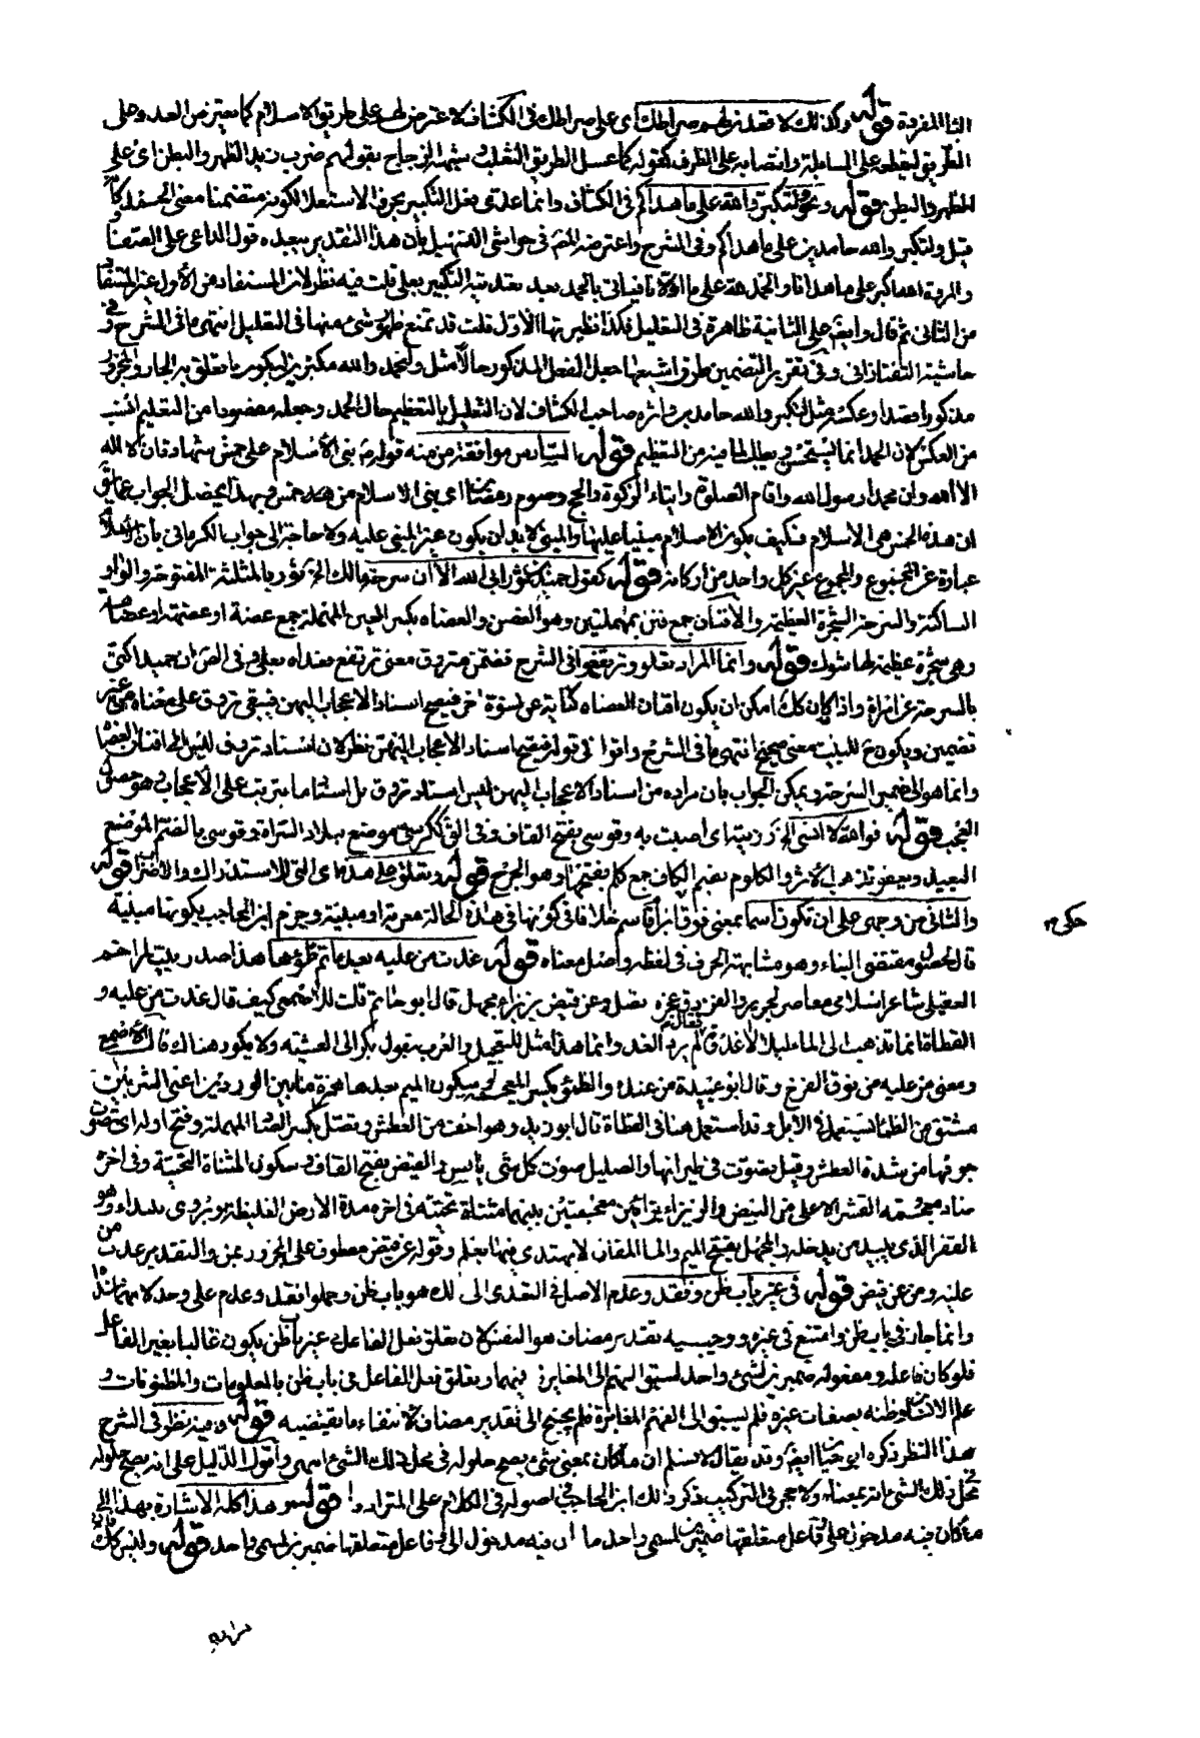 التا المفردة قوله وكذلك لاقعدن لهم صراطك اى على صراطك فى الكشاف لاعترض لهم على طريق الاسلام كما يعترض العدو على
الطريق ليقطعه على السابلة وانتصابه على الظرف كقوله كما عسل الطريق الثعلب وشبهه الزجاج بقولهم ضرب زيد الظهر والبطن اى على
الظهر والبطن قوله ونحو ولتكبروا الله على ما هداكم فى الكشاف وانما عدى فعل التكبير بحرف الاستعلا لكونه متضمنا معنى الحمد كانه
قيل ولتكبروا الله حامدين على ما هداكم وفى الشرح واعترضه المص فى حواشى التسهيل بأن هذا التقدير يبعده قول الداعى على الصفا
والمروة الله اكبر على ما هدانا والحمد لله على ما اولانا فيأتى بالحمد بعد تعديته التكبير بعلى قلت فيه نظر لان المستفاد من الأول غير المستفاد
من الثانى ثم قال وايضا على الثانية ظاهرة فى التعليل فكذا نظيرتها الاول قلت قد تمنع ظهور شىء منها فى التعليل انتهى ما فى الشرح وفى
حاشية التفتازانى وفى تقرير التضمين طرق اشيعها جعل الفعل المذكور حالا مثل ولتحمدوا الله مكبرين ليكون ما تعلق به الجار والمجرور
مذكورا قصدا وعكسه مثل ولتكبروا الله حامدين واثره صاحب الكشاف لان التعليل بالتعظيم حال الحمد وجعله مقصودا من التعليم انسب
من العكس لان الحمد انما يستحسن ويطلب لما فيه من التعظيم قوله السادس موافقة من منه قوله عم بنى الاسلام على خمس شهادة ان لا اله
الا الله وان محمدا رسول الله واقام الصلوة وايتاء الزكوة والحج وصوم رمضان اى بنى الاسلام من هذه خمس وبهذا يحصل الجواب عما يق
ان هذه الخمس هى الاسلام فكيف يكون الاسلام مبنيا عليها والمبنى لا بد ان يكون غير المبنى عليه ولا حاجة الى جواب الكرمانى بأن الاسلام
عبارة عن المجموع والمجموع غير كل واحد من اركانه قوله كقول حميد بن ثور ابى الله الا ان سرحة مالك الخ ثور بالمثلثة المفتوحة والواو
الساكنة والسرحة الشجرة العظيمة والافنان جمع فنن بمهملتين وهو الغصن والعضاه بكسر العين المهملة جمع عضة او عضهة او عضاهة
وهى شجرة عظيمة لها شوك قوله وانما المراد تعلو وترتفع فى الشرح فضمن تروق معنى ترتفع فعداه بعلى وفى الص ان حميدا كنى
بالسرحة عن امراة واذا كان كك امكن ان يكون افنان العضاه كناية عن نسوة اخر فيصح اسناد الاعجاب اليهن فيبقى تروق على معناه من غير
تضمين ويكون ع للبيت معنى صحيح انتهى ما فى الشرح واقول فى قوله فيصح اسناد الاعجاب اليهن نظر لان اسناد تروق ليس الى افنان العضاه
وانما هو الى ضمير السرحة ويمكن الجواب بان مراده من اسناد الاعجاب اليهن ليس اسناد تروق بل اسناد ما يترتب على الاعجاب وهو حصول
العجب قوله فوالله لا انسى الخ رزيته اى اصبت به وقوسى بفتح القاف وفى الق كسكرى موضع ببلاد السراة وقوسى بالضم الموضع
البعيد ويعفو تذهب الاثر والكلوم بضم الكاف جمع كلم بفتحها وهو الجرح قوله وتعلق على هذه اى التى للاستدراك والاضراب قوله
والثانى من وجهى على ان تكون اسما بمعنى فوق ابن قاسم خلافا فى كونها فى هذه الحالة معربة او مبنية وجزم ابن الحاجب بكونها مبنية
قال لحصول مقتضى البناء وهو مشابهة الحرف فى لفظه واصل معناه قوله غدت من عليه بعد ما تم ظمؤها هذا صدر بيت لمزاحم
العقيلى شاعر اسلامى معاصر لجرير والفرزدق عجزه تصل وعن قيض بزيزاء مجهل قال ابو حاتم قلت للاصمعى كيف قال غدت من عليه و
القطاة انما تذهب الى الما ليلا لا غدوة فقال لم يرد الغدو وانما هذا مثل للتعجيل والعرب تقول بكر الى العشية ولا بكور هناك قال الاصمعى
ومعنى من عليه من فوق الفرخ وقال ابو عبيدة من عنده والظمؤ بكسر المعجمة وسكون الميم بعدها همزة ما بين الوردين اعنى الشربتين
مشتق من الظما يستعمل فى الابل وقد استعمل هنا فى القطاة قال ابو زيد وهو اخف من العطش وتصل بكسر الصاد المهملة وفتح اوله اى تصوت
جوفها من شدة العطش وقيل تصوت فى طيرانها والصليل صوت كل شى يابس والقيض بفتح القاف وسكون المثناة التحتية وفى اخره
ضاد معجمة القشر الاعلى من البيض والزيزاء بزايين معجمتين بينهما مثناة تحتية فى اخره مدة الارض الغليظة ويروى ببيداء وهو
القفر الذى يبيد من يدخله والمجهل بفتح الميم والها المفازة لا يهتدى فيها بعلم وقوله عن قيض معطوف على المجرور بمن والتقدير غدت من
عليه ومن عن قيض قوله فى غير باب ظن وفقد وعدم الاصل فى التعدى الى ذلك هو باب ظن وحملوا فقد وعدم على وجد لانهما ضداه
وانما جاز فى باب ظن وامتنع فى غيره ووجب فيه تقدير مضاف هو النفس لان تعلق فعل الفاعل فى غير باب ظن يكون غالبا بغير الفاعل
فلو كان فاعله ومفعوله ضميرين لشىء واحد لسبق الفهم الى المغايرة فيهما وتعلق فعل الفاعل فى باب ظن بالمعلومات والمظنونات و
علم الانسان وظنه بصفات غيره فلم يسبق الى الفهم المغايرة فلم يحتج الى تقدير مضاف لانتفاء ما يقتضيه قوله وفيه نظر فى الشرح
هذا النظر ذكره ابو حيان ايضا وقد يقال لا يسلم ان ما كان بمعنى شىء يصح حلوله فى محل ذلك الشىء انتهى واقول الدليل على انه يصح حلوله
فى محل ذلك الشىء انه بمعناه ولا حجر فى التركيب ذكر ذلك ابن الحاجب فى اصوله فى الكلام على المترادف قوله هذا كله الاشارة بهذا الى
ما كان فيه مدخول على وفاعل متعلقها ضميرين لمسمى واحد ما ان فيه مدخول الى وفاعل متعلقها ضميرين لمسمى واحد قوله وليس كك
حكى م